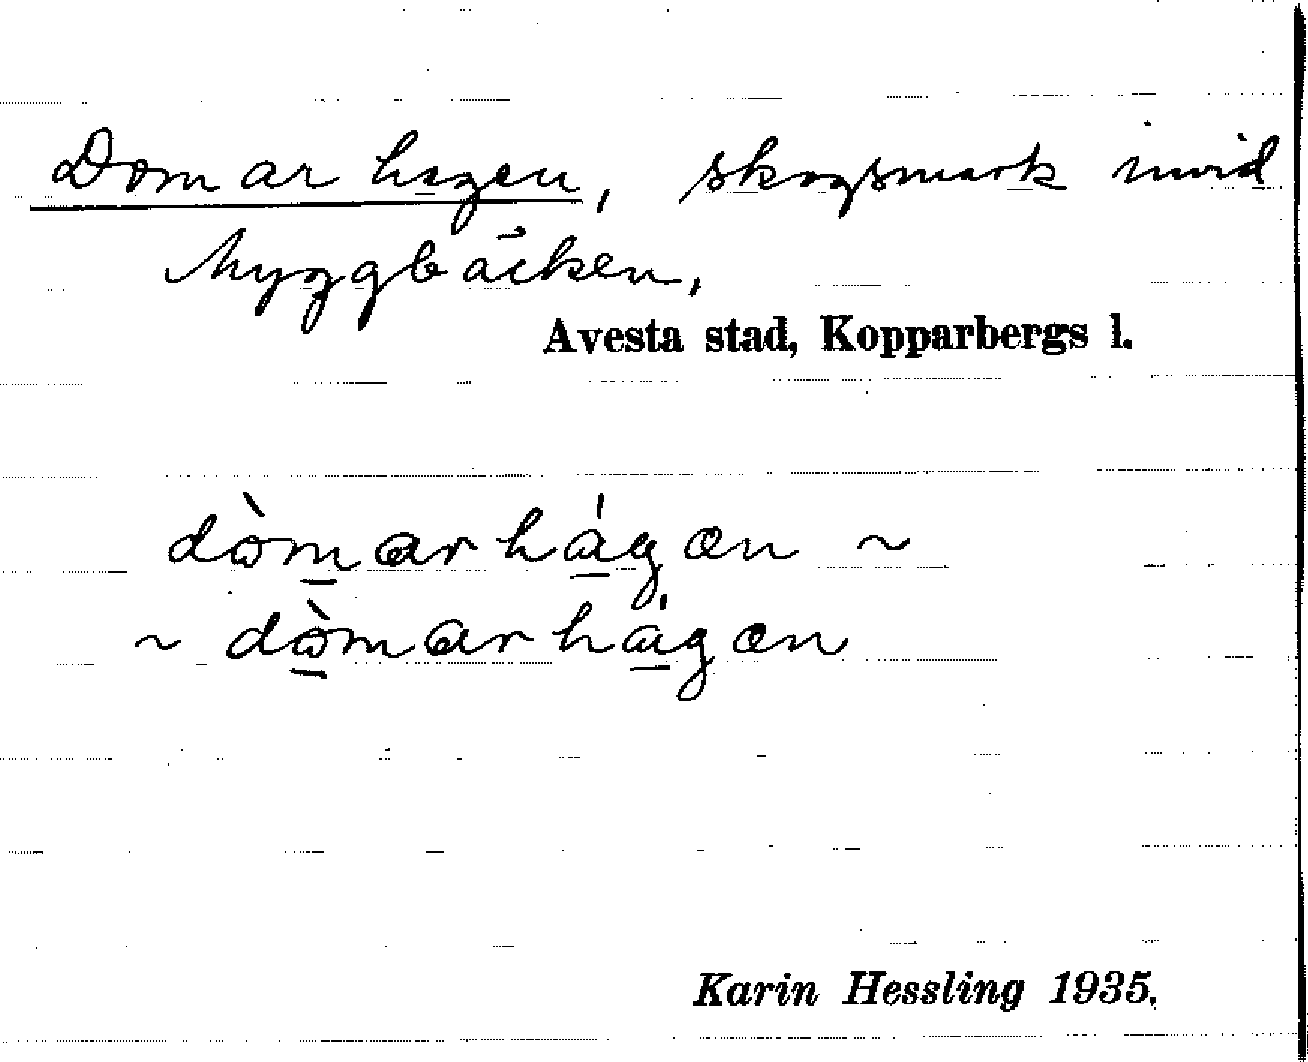 Domarhagen, skogsmark invid
Myggbäcken,
Avesta stad, Kopparbergs l.
dòmarhágen ~
~ dòmarhágen
Karin Hessling 1935.